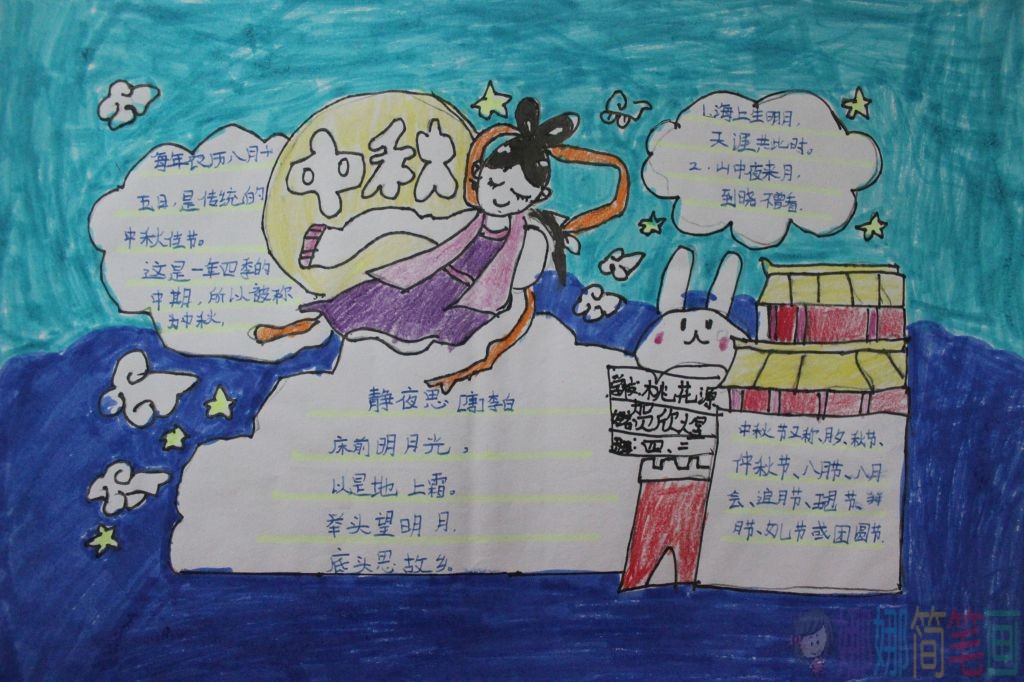 中秋
每年农历八月十
五日,是传统的
中秋佳节。
这是一年四季的
中期,所以被称
为中秋,
1.海上生明月,
天涯共此时。
2.山中夜来月,
到晓不曾看.
静夜思 [唐]李白
床前明月光,
以是地上霜。
举头望明月.
底头思故乡。
学校:桃 源
欣煜
四、二
中秋节又称、月夕、秋节、
仲秋节、八月节、八月
会、追月节、玩月节、拜
月节、女儿节或团圆节.
娜娜简笔画